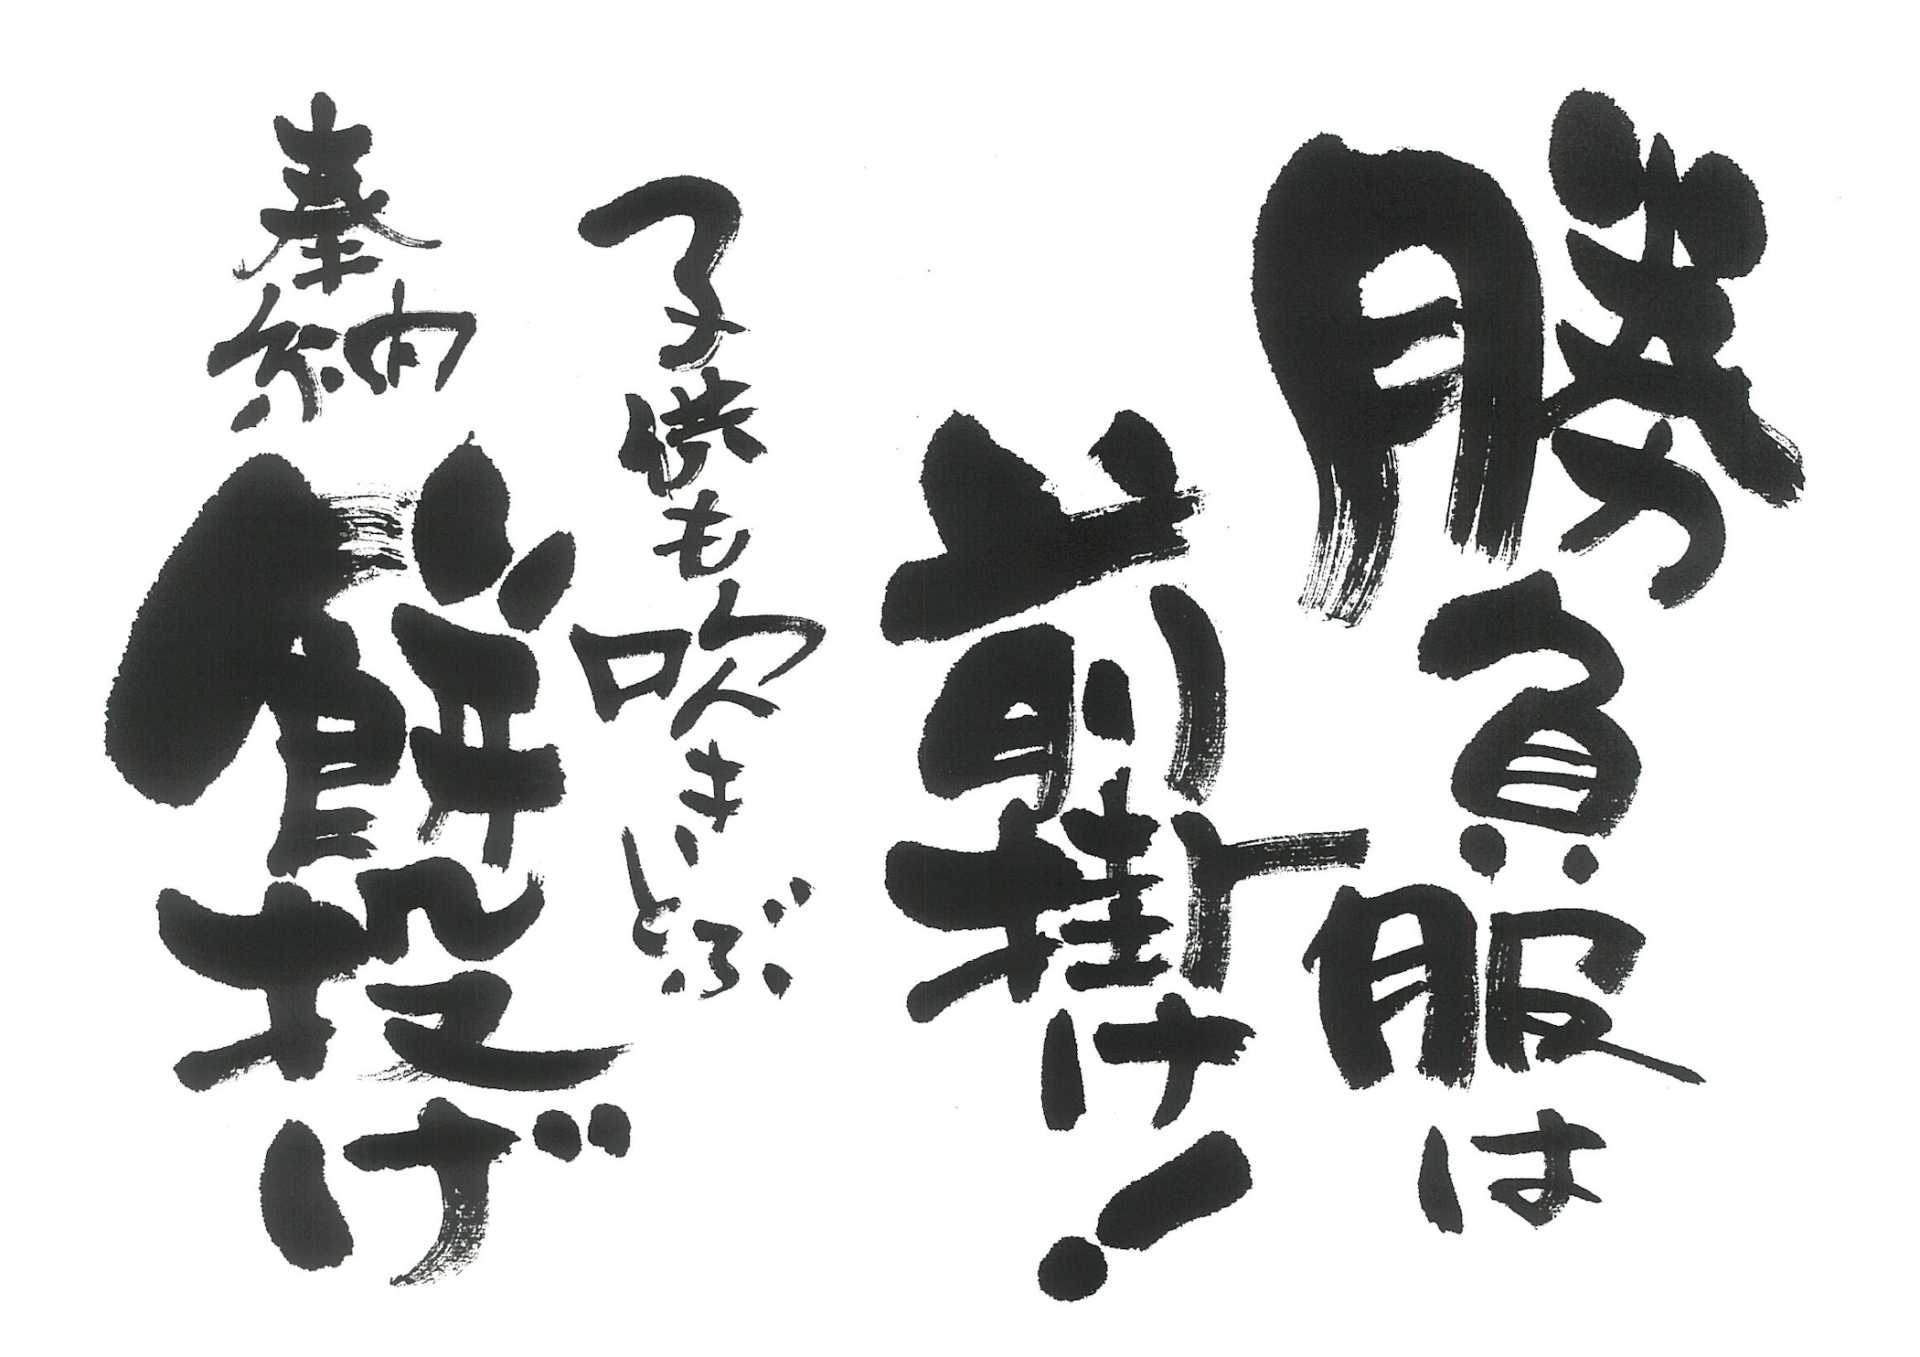 勝負服は
前掛け！
子供も吹きとぶ
奉納
餅投げ